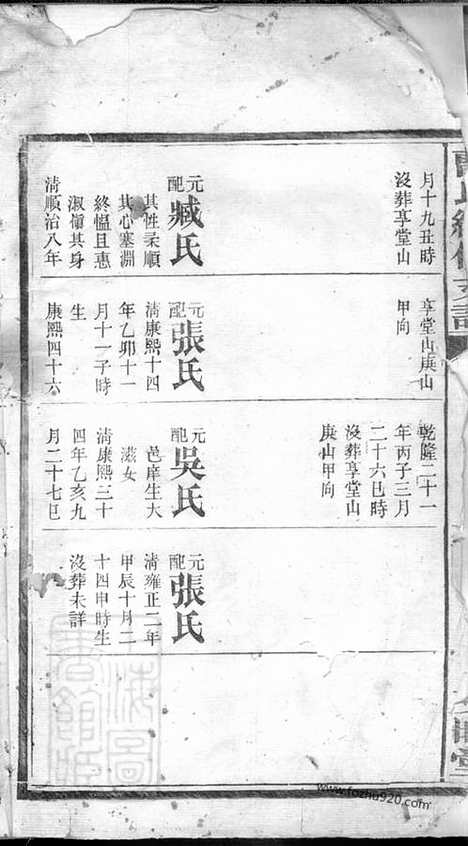 月十九丑時
沒葬享堂山
元配臧氏
其性柔順
其心塞淵
終慍且惠
淑慎其身
清順治八年
享堂山庚山
甲向
元配張氏
清康熙十四
年乙卯十一
月十一子時
生
康熙四十六
乾隆二十一
年丙子三月
二十六巳時
沒葬享堂山
庚山甲向
元配吳氏
邑庠生大
滋女
清康熙三十
四年乙亥九
月二十七巳
元配張氏
清雍正二年
甲辰十月二
十四申時生
沒葬未詳
www.fozhu920.com